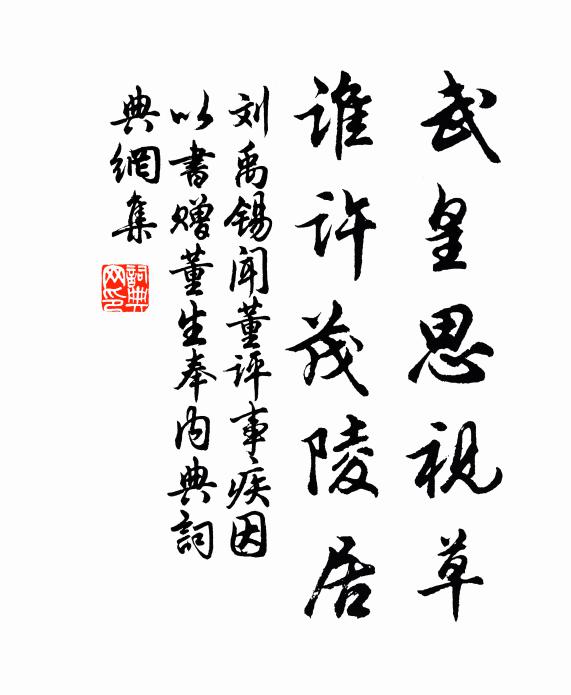 武皇思视草
谁许茂陵居
刘禹锡闻董评事疾因
以書赠董生奉内典詞
典網集
詞典网印